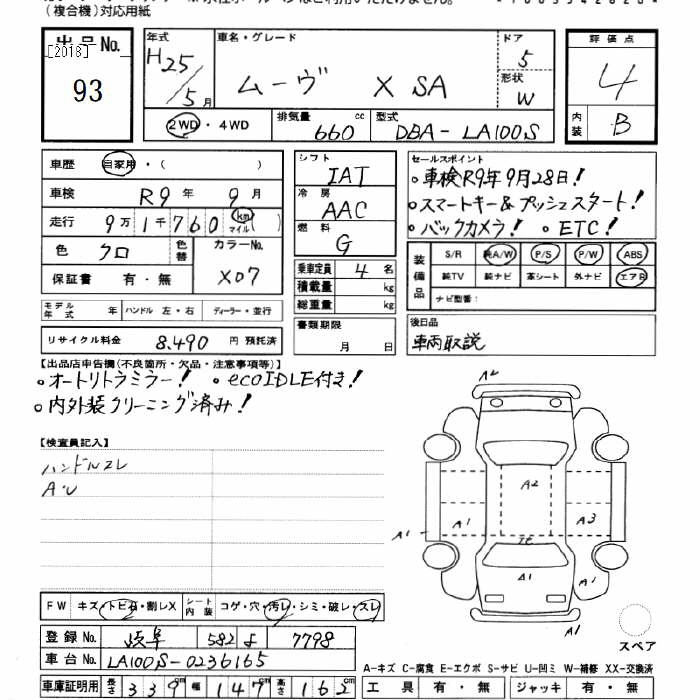 (複合機)対応用紙
出品No.
[2018]
93
年式
H25/5月
車名・グレード
ムーヴ X SA
ドア
5
形状
W
評価点
4
内装
B
2WD・4WD
排気量 660 cc
型式 DBA-LA100S
車歴 自家用・( )
車検 R9年 9月
走行 9万1千760 km マイル ( )
色 クロ
色替
カラーNo. X07
保証書 有・無
モデル年式 年 ハンドル 左・右 ディーラー・並行
リサイクル料金 8,490 円 預託済
シフト
IAT
冷房
AAC
燃料
G
乗車定員 4 名
積載量 kg
総重量 kg
書類期限
月 日
セールスポイント
・車検R9年9月28日!
・スマートキー&プッシュスタート!
・バックカメラ! ・ETC!
装備品
S/R 純A/W P/S P/W ABS
純TV 純ナビ 革シート 外ナビ エアB
ナビ型番:
後日品
車両取説
【出品店申告欄(不良箇所・欠品・注意事項等)】
・オートリトラミラー! ・ecoIDLE付き!
・内外装クリーニング済み!
【検査員記入】
ハンドルスレ
A・U
A2
A2
A1
A1
A3
A1
A1
A1
スペア
FW キズ・トビ石・割レX
シート内装 コゲ・穴・汚レ・シミ・破レ・スレ
登録No. 岐阜 582 よ 7798
車台No. LA100S-0236165
車庫証明用 長さ 339cm 幅 147cm 高さ 162cm
A-キズ C-腐食 E-エクボ S-サビ U-凹ミ W-補修 XX-交換済
工具 有・無 ジャッキ 有・無